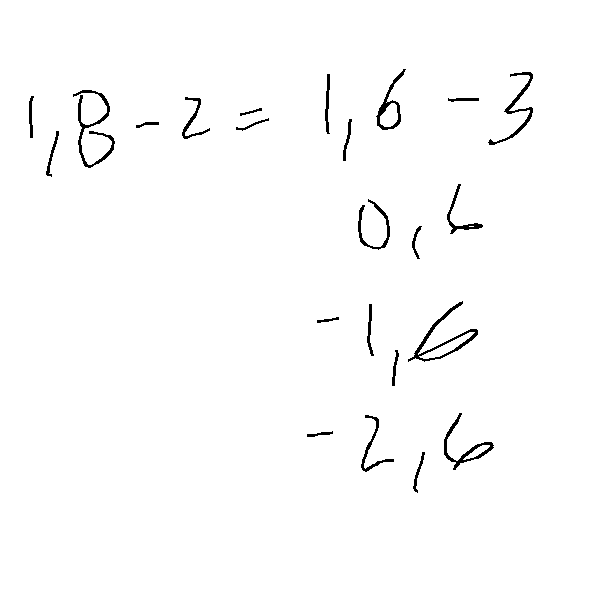 1,8 - 2 = 1,6 - 3
0,6
-1,6
-2,6